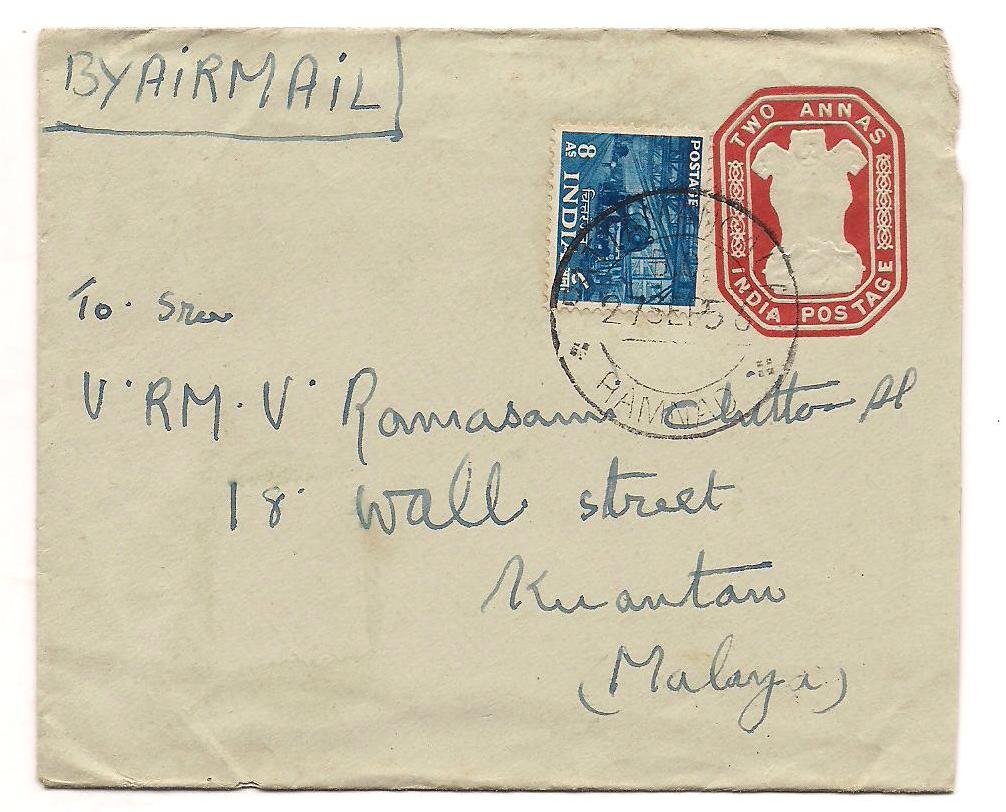 BY AIRMAIL
TWO ANNAS
INDIA POSTAGE
POSTAGE
8 AS INDIA
27 SEP 5
RAMNAD
To. Sree
V. RM. V. Ramasami Chettiar
18 Wall street
Kuantan
(Malaya)